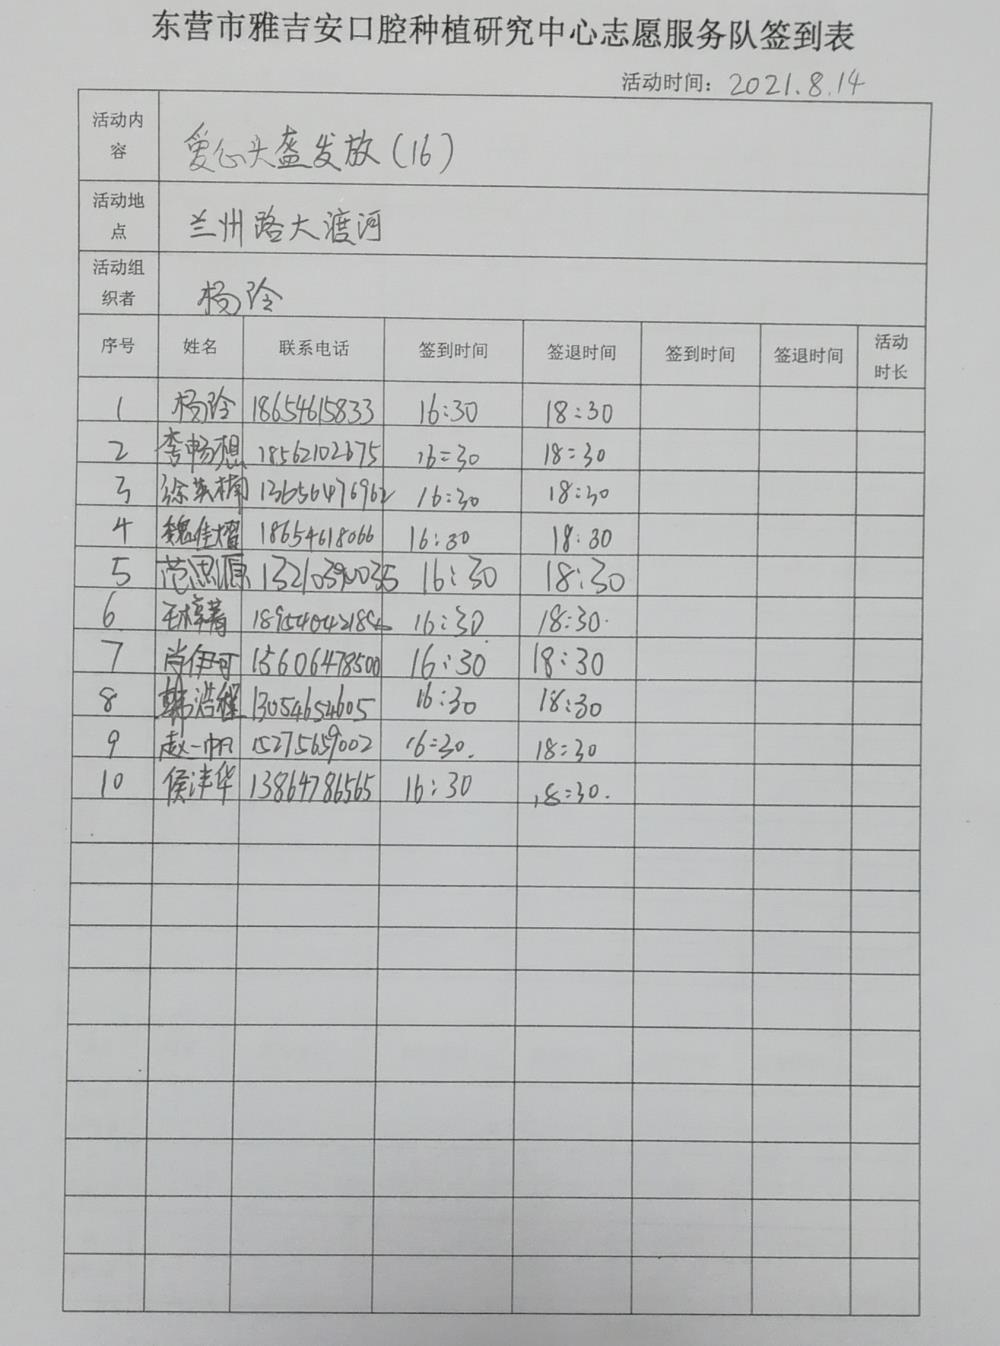 东营市雅吉安口腔种植研究中心志愿服务队签到表
活动时间：2021.8.14
活动内容 爱心头盔发放(16)
活动地点 兰州路大渡河
活动组织者 杨玲
序号 姓名 联系电话 签到时间 签退时间 签到时间 签退时间 活动时长
1 杨玲 18654615833 16:30 18:30
2 李畅想 18562102675 16:30 18:30
3 徐英楠 13656476962 16:30 18:30
4 魏佳耀 18654618066 16:30 18:30
5 范思源 13210390035 16:30 18:30
6 王梓菁 16:30 18:30
7 肖伊可 15606478500 16:30 18:30
8 韩浩程 13054654605 16:30 18:30
9 赵一帆 15275659002 16:30. 18:30
10 侯沣华 13864786565 16:30 18:30.